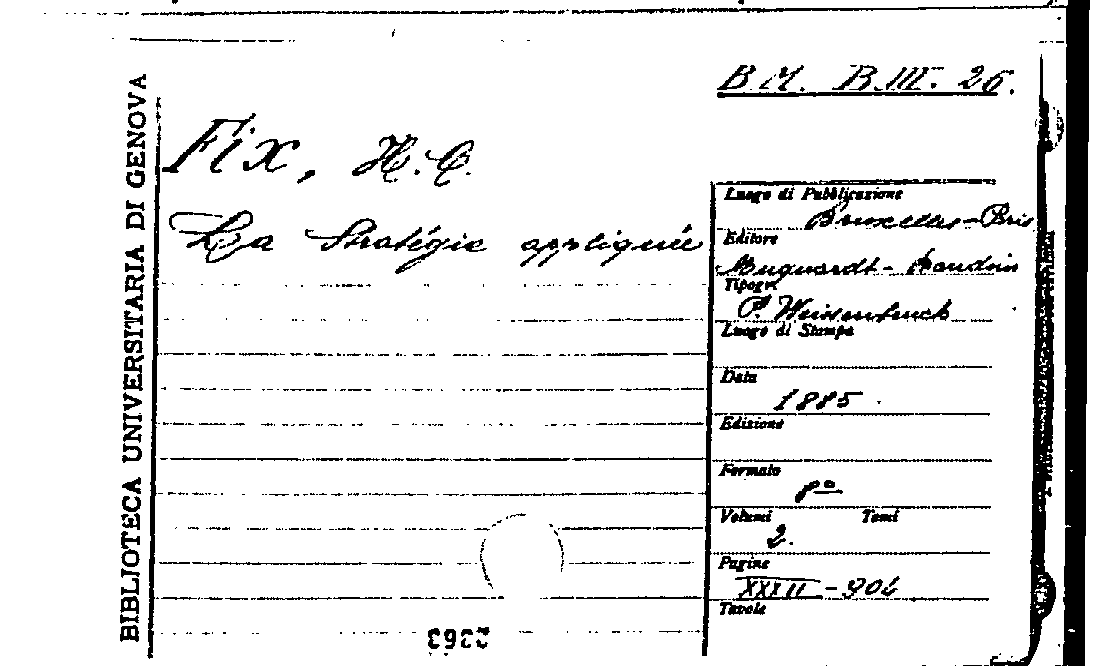 B.M. B.III. 26.
BIBLIOTECA UNIVERSITARIA DI GENOVA
Fix, H.C.
La Stratégie appliquée
Luogo di Pubblicazione
Bruxelles-Paris
Editore
Muquardt - Baudoin
Tipogr.
P. Weissenbruch
Luogo di Stampa
Data
1885.
Edizione
Formato
8º
Volumi Tomi
2.
Pagine
XXXII -
Tavole
2363